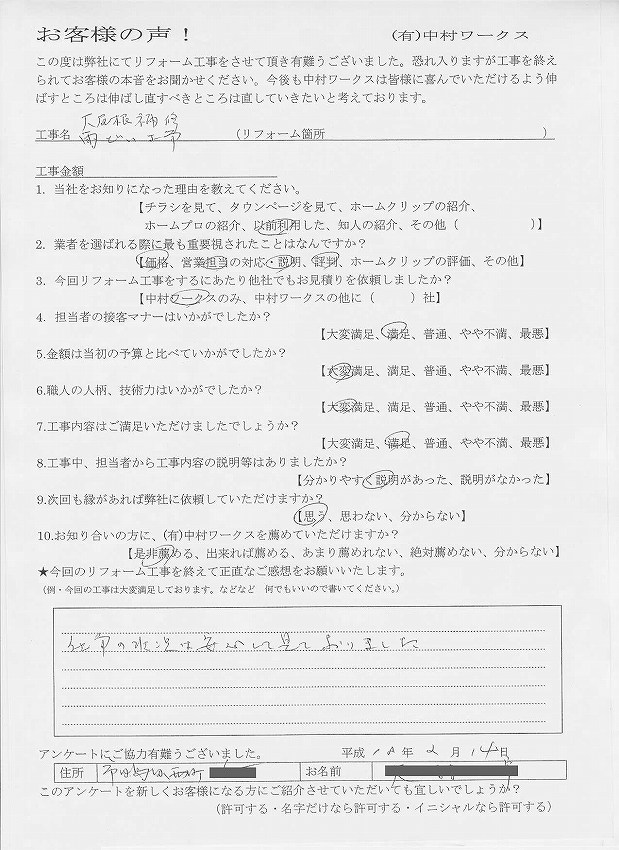 お客様の声！ (有)中村ワークス
この度は弊社にてリフォーム工事をさせて頂き有難うございました。恐れ入りますが工事を終え
られてお客様の本音をお聞かせください。今後も中村ワークスは皆様に喜んでいただけるよう伸
ばすところは伸ばし直すべきところは直していきたいと考えております。
大屋根補修
工事名 雨どい工事 (リフォーム箇所 )
工事金額
1. 当社をお知りになった理由を教えてください。
【チラシを見て、タウンページを見て、ホームクリップの紹介、
ホームプロの紹介、以前利用した、知人の紹介、その他（ ）】
2. 業者を選ばれる際に最も重要視されたことはなんですか？
【価格、営業担当の対応・説明、評判、ホームクリップの評価、その他】
3. 今回リフォーム工事をするにあたり他社でもお見積りを依頼しましたか？
【中村ワークスのみ、中村ワークスの他に（ ）社】
4. 担当者の接客マナーはいかがでしたか？
【大変満足、満足、普通、やや不満、最悪】
5.金額は当初の予算と比べていかがでしたか？
【大変満足、満足、普通、やや不満、最悪】
6.職人の人柄、技術力はいかがでしたか？
【大変満足、満足、普通、やや不満、最悪】
7.工事内容はご満足いただけましたでしょうか？
【大変満足、満足、普通、やや不満、最悪】
8.工事中、担当者から工事内容の説明等はありましたか？
【分かりやすく説明があった、説明がなかった】
9.次回も縁があれば弊社に依頼していただけますか？
【思う、思わない、分からない】
10.お知り合いの方に、(有)中村ワークスを薦めていただけますか？
【是非薦める、出来れば薦める、あまり薦めれない、絶対薦めない、分からない】
★今回のリフォーム工事を終えて正直なご感想をお願いいたします。
（例・今回の工事は大変満足しております。などなど 何でもいいので書いてください。）
仕事の状況は安心して見ておりました
アンケートにご協力有難うございました。 平成 年 2 月 14 日
住所 お名前
このアンケートを新しくお客様になる方にご紹介させていただいても宜しいでしょうか？
（許可する・名字だけなら許可する・イニシャルなら許可する）